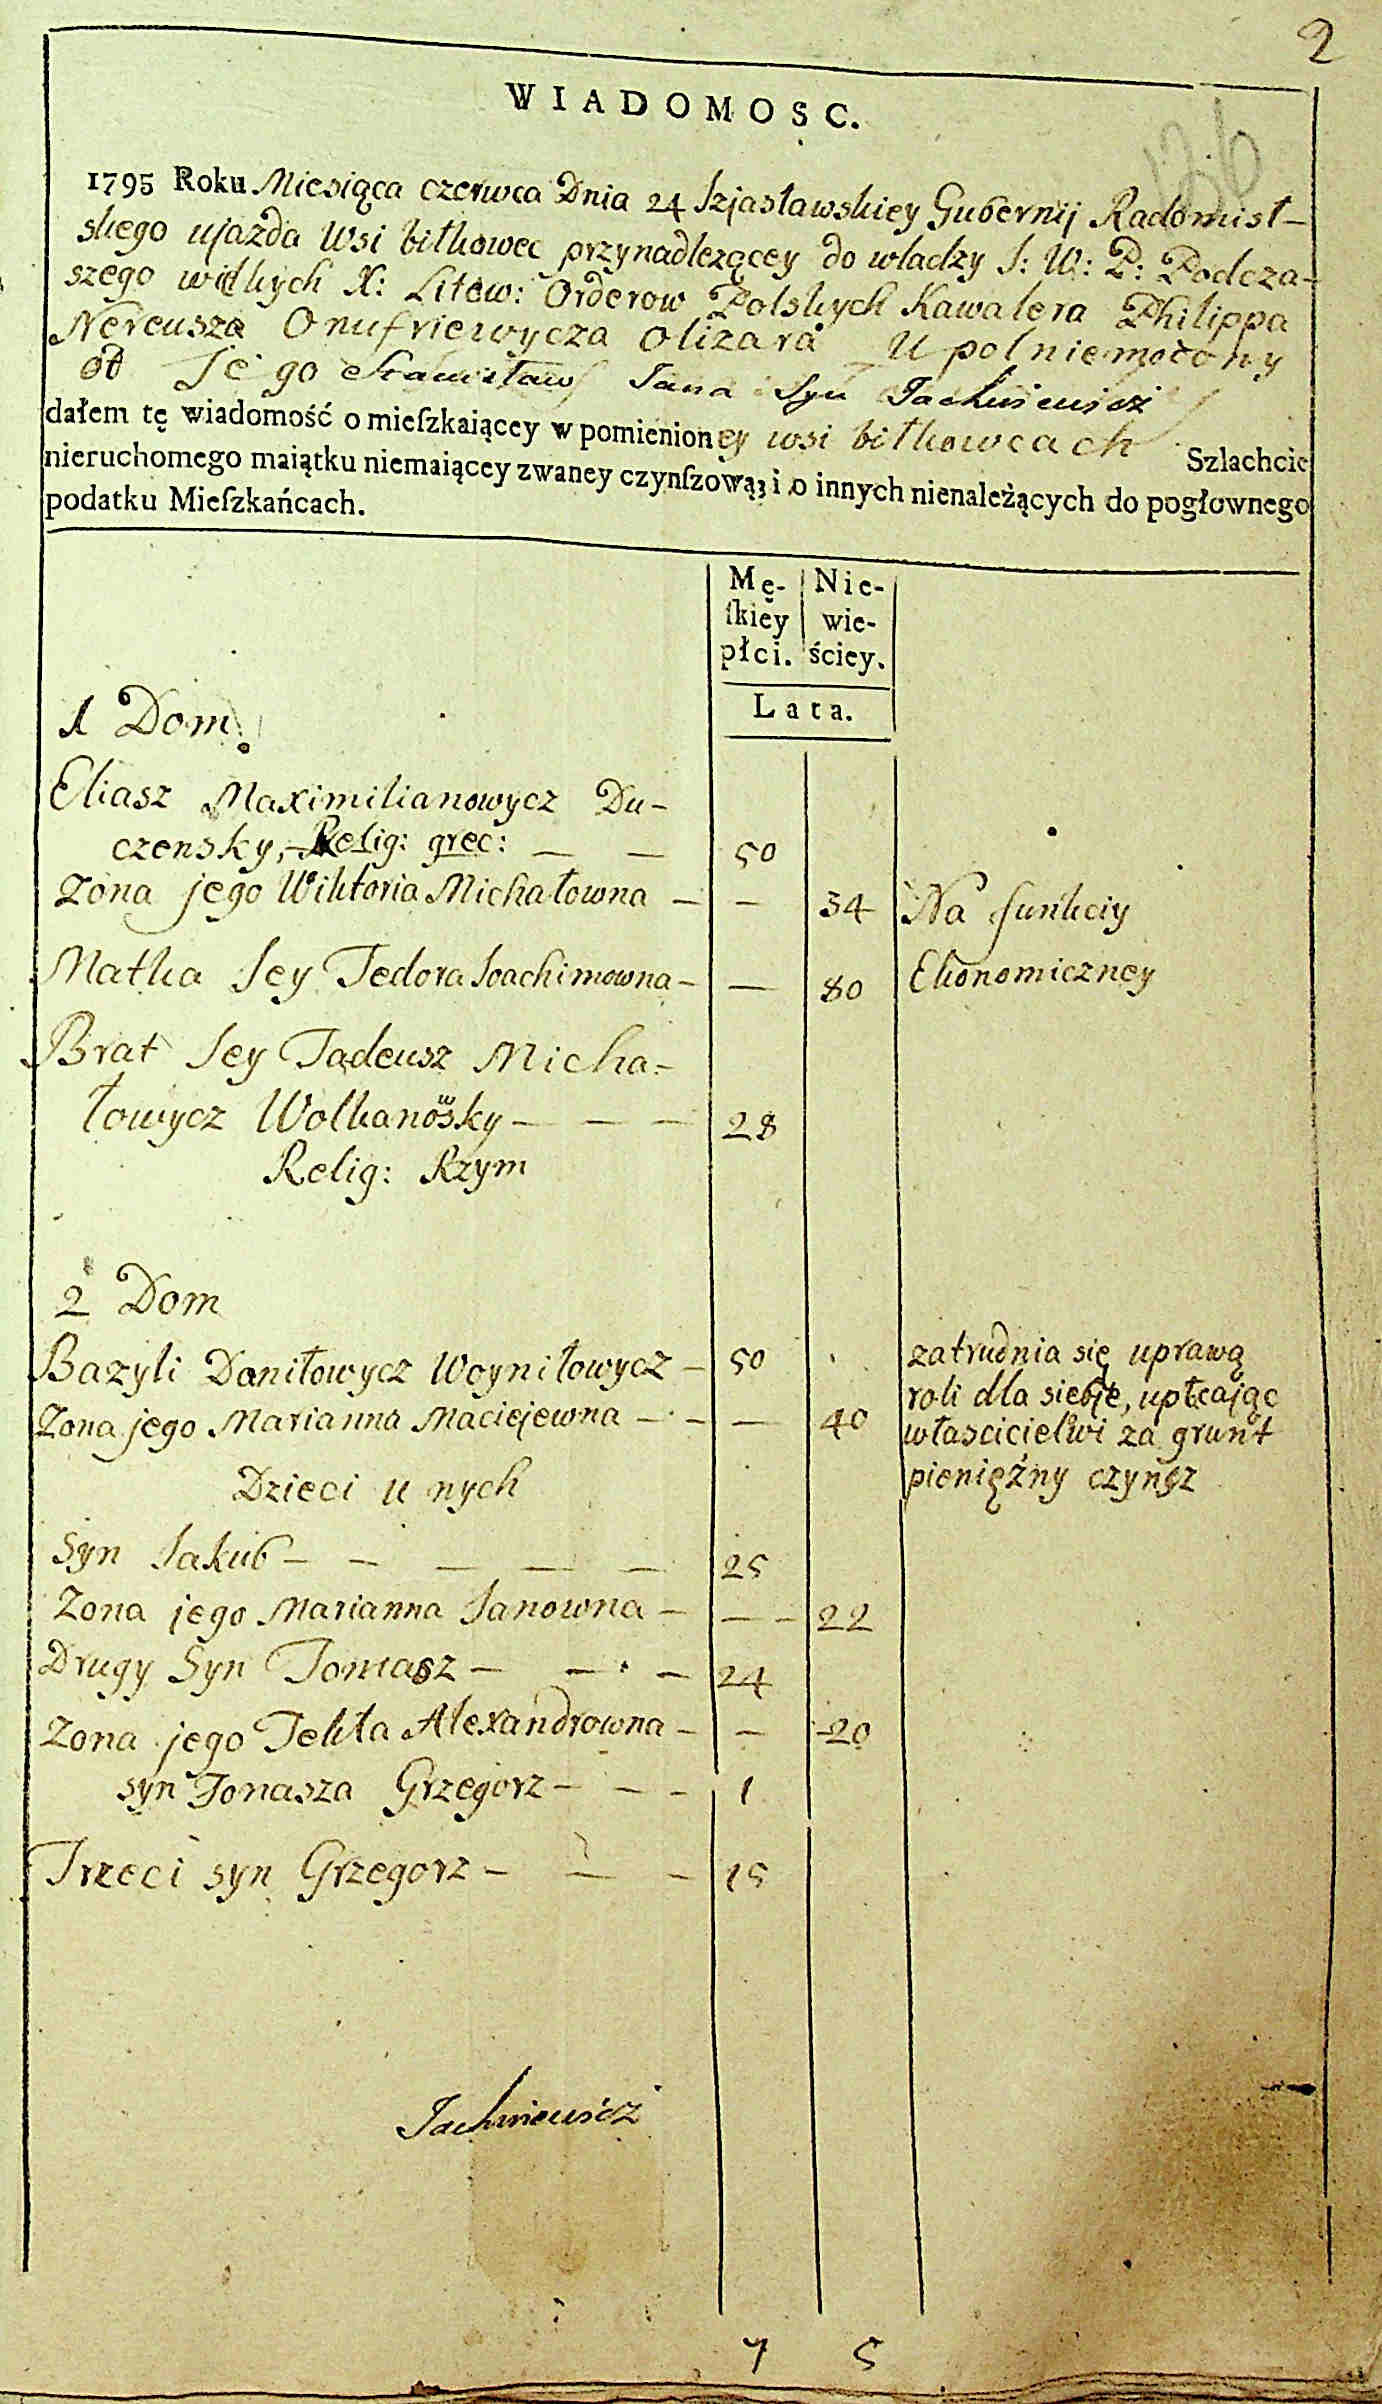 2
136
WIADOMOSC.
1795 Roku Miesiąca czerwca Dnia 24 Izjasławskiey Gubernij Radomisl-
skego ujazda Wsi bitkowec przynadlezącey do wladzy J: W: P: Podcza-
szego wielkych X: Litew: Orderow Polskych Kawalera Philippa
Nereusza Onufriewycza Olizara Upolniemocony
od Jego Stanisław Jana Syn Jachniewicz
dałem tę wiadomość o mieſzkaiącey w pomienioney wsi bitkowcach Szlachcie
nieruchomego maiątku niemaiącey zwaney czynſzową; i o innych nienależących do pogłownego
podatku Mieſzkańcach.
Mę- Nie-
ſkiey wie-
płci. ściey.
Lata.
1 Dom.
Eliasz Maximilianowycz Du-
czensky, Relig: grec: — — 50
Zona jego Wiktoria Michałowna — — 34 Na funkciy
Matka Jey Tedora Joachimowna — — 80 Ekonomiczney
Brat Jey Tadeusz Micha-
łowycz Wolkanowsky — — — 28
Relig: Rzym
2 Dom
Bazyli Daniłowycz Woyniłowycz — 50 zatrudnia się uprawą
roli dla siebje, upłcając
Zona jego Marianna Maciejewna — — — 40 włascicielwi za grunt
Dzieci u nych pieniężny czynsz
Syn Jakub — — — — — 25
Zona jego Marianna Janowna — — — 22
Drugy Syn Tomasz — — — 24
Zona jego Tekla Alexandrowna — — 20
syn Tomasza Grzegorz — — — 1
Trzeci syn Grzegorz — — — 15
Jachniewicz
7 5